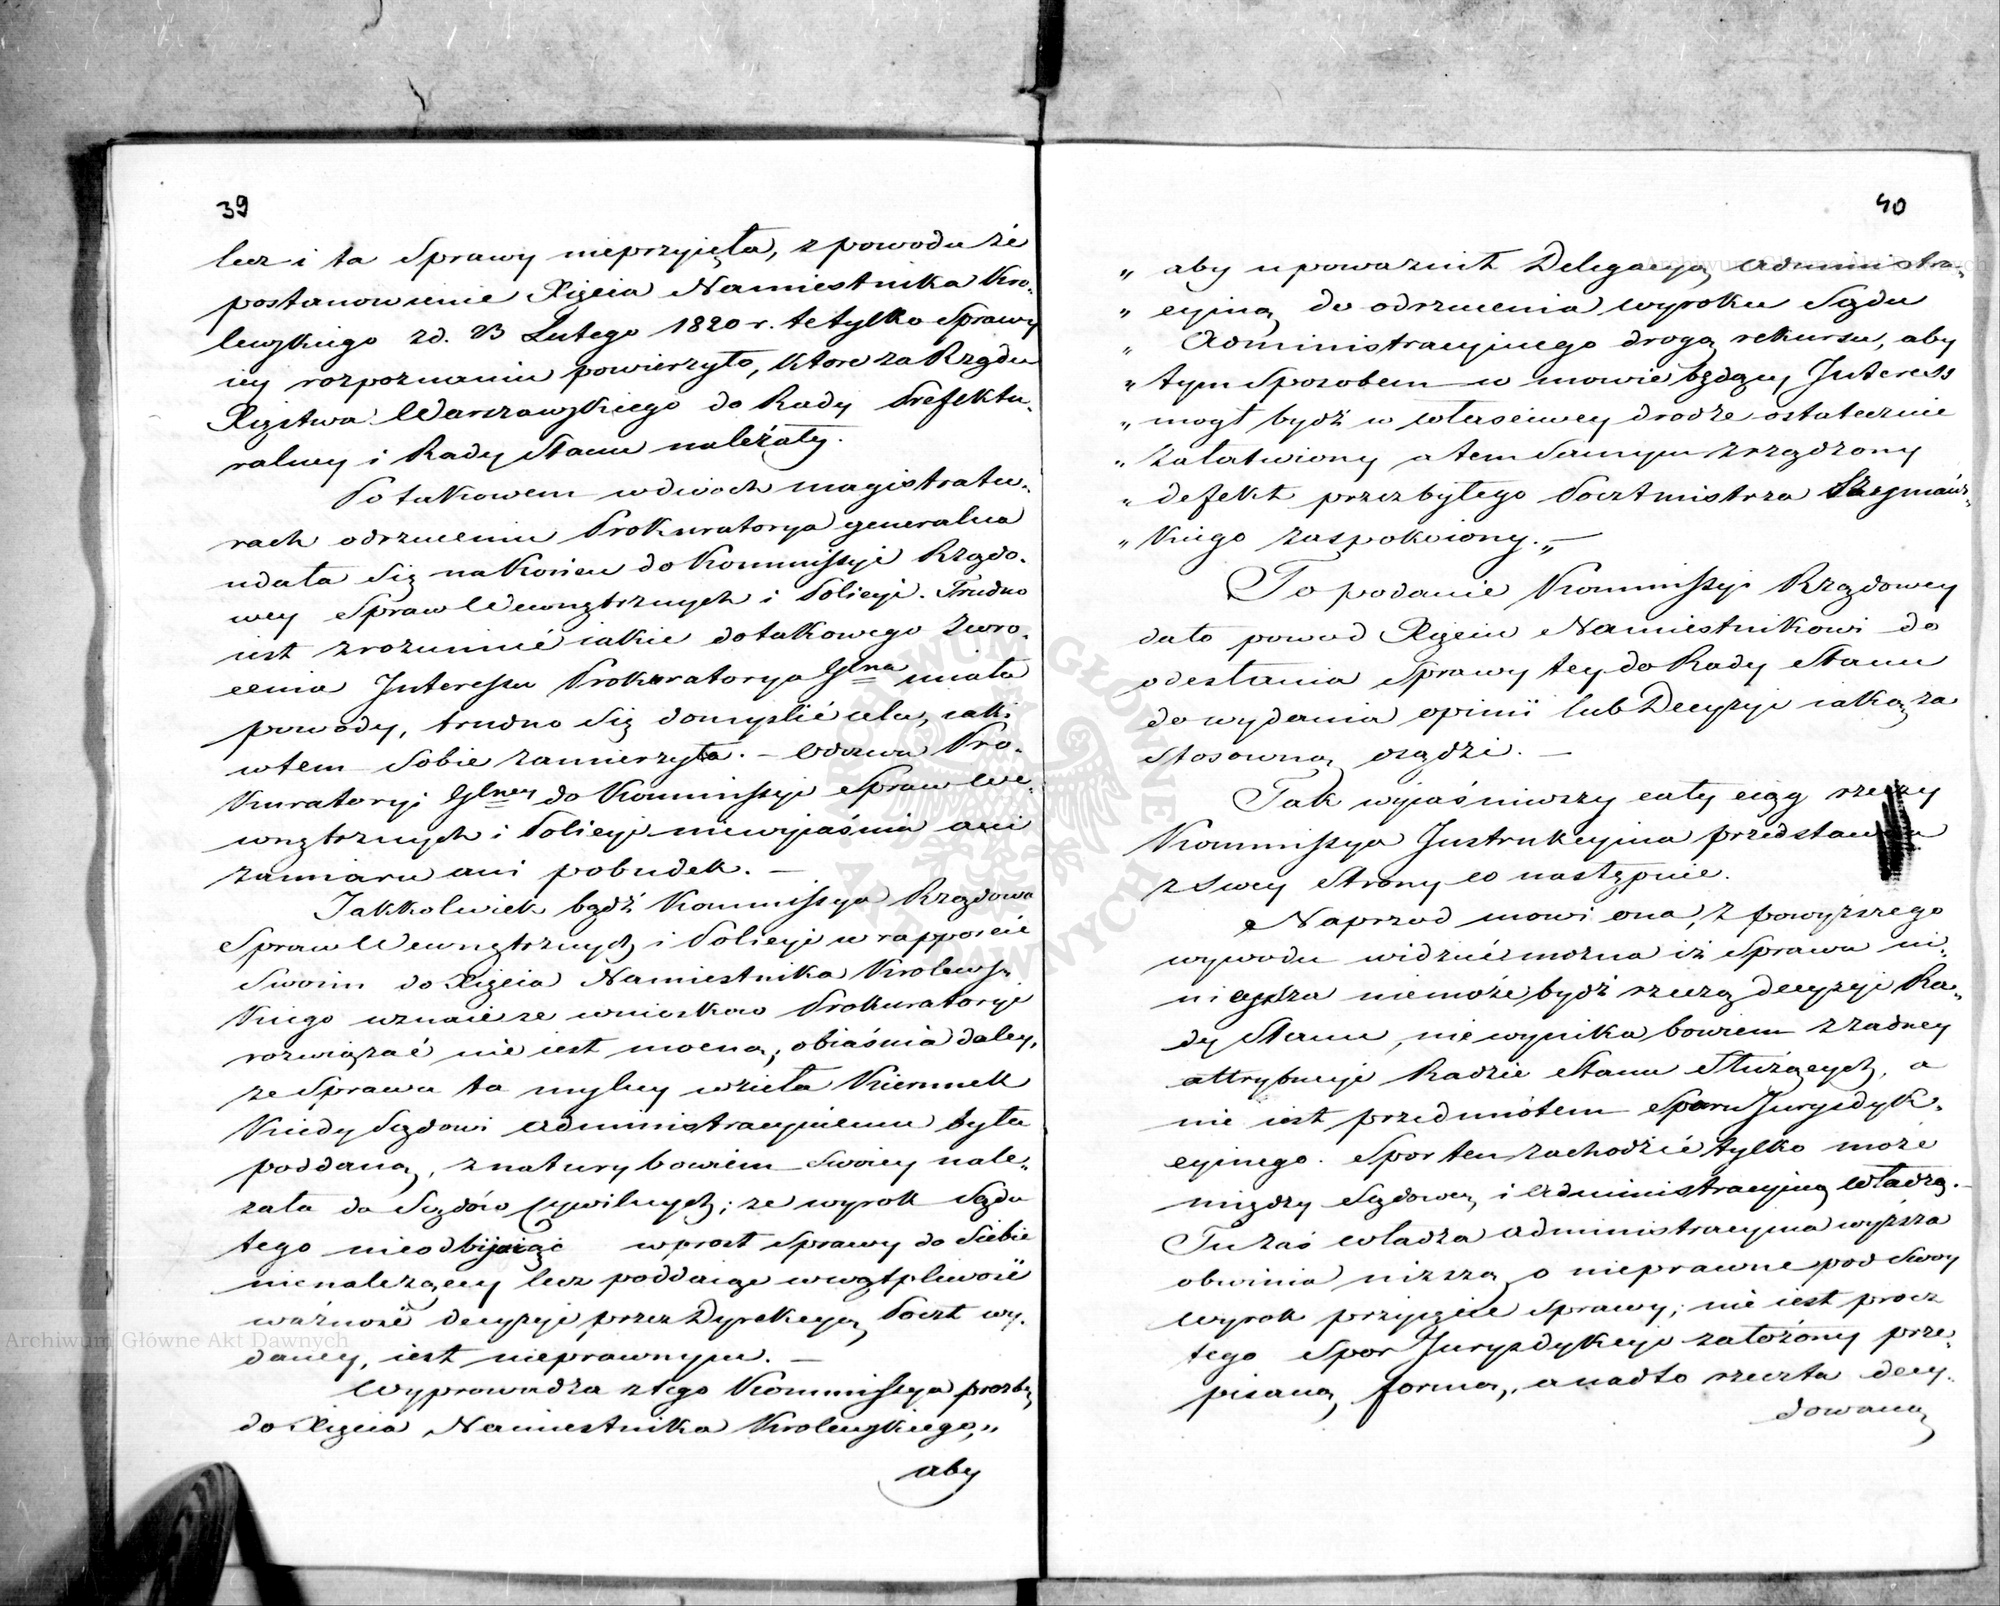 39
lecz i ta Sprawy nieprzyięła, z powodu że
postanowienie Xięcia Namiestnika Kro„
lewskiego z d. 23 Lutego 1820 r. te tylko Sprawy
iey rozpoznaniu powierzyło, ktore za Rządu
Xięstwa Warszawskiego do Rady Prefektu„
ralney i Rady Stanu należały.
Po takowem w dwóch magistratu„
rach odrzuceniu Prokuratorya generalna
udała się nakoniec do Kommissyi Rządo„
wey Spraw Wewnętrznych i Policyi. Trudno
iest zrozumieć iakie do takowego zwro„
cenia Interessu Prokuratorya Glna miała
powody, trudno się domyslić celu, iaki
w tem sobie zamierzyła. — Odezwa Pro„
kuratoryi Glney do Kommissyi Spraw We„
wnętrznych i Policyi niewyiaśnia ani
zamiaru ani pobudek. —
Jakkolwiek bądź Kommissya Rządowa
Spraw Wewnętrznych i Policyi w rapporcie
Swoim do Xięcia Namiestnika Krolews„
kiego uznaie ze wniosków Prokuratoryi
rozwiązać nie iest mocna, obiaśnia daley,
ze Sprawa ta mylny wzieła kierunek
kiedy Sądowi Administracyinemu była
poddaną, z natury bowiem swoiey nale„
zała do Sądów Cywilnych; ze wyrok Sądu
tego nieodbijaiąc wprost Sprawy do Siebie
nienalezącey lecz poddaiąc w wątpliwość
ważność decyzyi przez Dyrekcyą Poczt wy„
daney, iest nieprawnym. —
Wyprowadza z tego Kommissya prozbę
do Xięcia Namiestnika Krolewskiego, „
aby
40
„ aby upoważnił Delegacyą Administra„
„ cyiną do odrzucenia wyroku Sądu
„ Administracyinego drogą rekursu, aby
„ tym Sposobem w mowie będący Interess
„ mogł bydź w właściwey drodze ostatecznie
„ załatwiony a tem samym zrządzony
„ defekt przez byłego Pocztmistrza
„ kiego zaspokoiony. „ —
To podanie Kommissyi Rządowey
dało powod Xięciu Namiestnikowi do
odesłania Sprawy tey do Rady Stanu
do wydania opinii lub Decyzyi iaką za
stosowną osądzi. —
Tak wyiaśniwszy cały ciąg rzeczy
Kommissya Instrukcyina przedstawia
z swey strony co następuie.
Naprzod mowi ona, z powyższego
wywodu widzieć mozna iż Sprawa ni„
nieysza niemoże bydź rzeczą decyzyi Ra„
dy Stanu, niewynika bowiem z zadney
attrybucyi Radzie Stanu służących, a
nie iest przedmiotem Sporu Jurysdyk„
cyinego. Spor ten zachodzić tylko może
między Sądową i Administracyiną władzą. —
Tu zaś władza administracyina wyższa
obwinia niższą o nieprawne pod swoy
wyrok przyięcie Sprawy; nie iest procz
tego Spor Jurysdykcyi załozony prze„
pisaną formą, a nadto rzecz ta decy„
dowaną